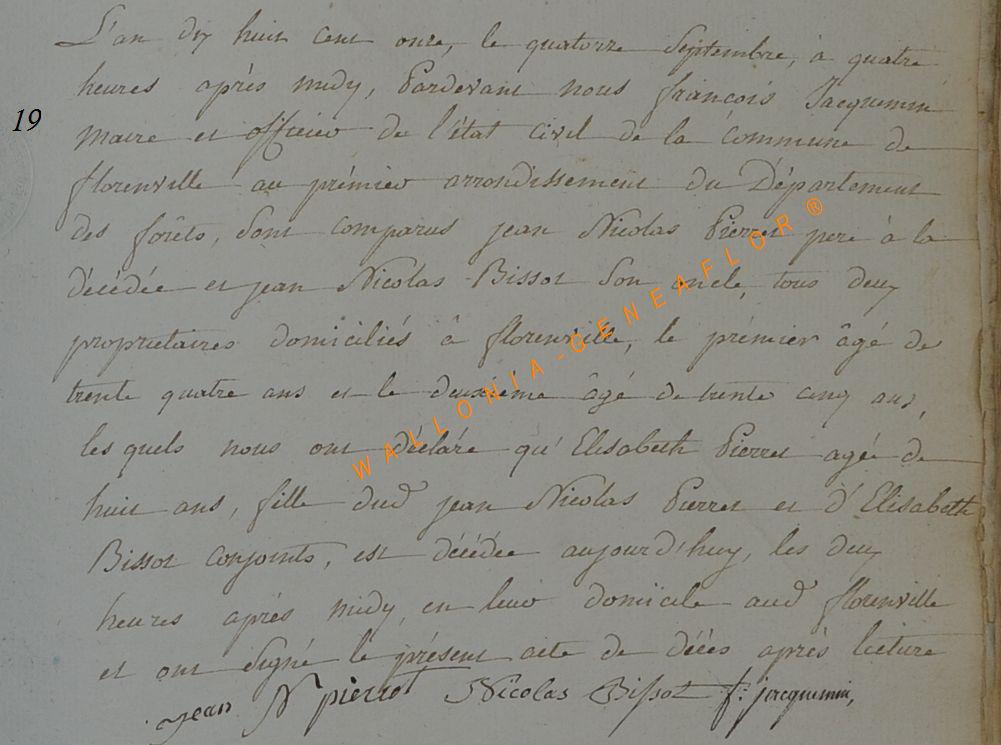 L'an dix huit cent onze, le quatorze Septembre, à quatre
heures après midy, Pardevant nous françois Jacquemin
19
Maire et officier de l'état civil de la Commune de
florenville au prémier arrondissement du Département
des forêts, Sont comparus jean Nicolas Pierret pere à la
décédée et jean Nicolas Bissot Son oncle, tous deux
propriétaires domiciliés à florenville, le prémier âgé de
trente quatre ans et le deuxiéme âgé de trente cinq ans,
les quels nous ont déclaré qu'Elisabeth Pierret agée de
huit ans, fille dud jean Nicolas Pierret et d'Elisabeth
Bissot conjoints, est décédée aujourd'huy, les deux
heures après midy, en leur domicile aud florenville
et ont Signé le présent acte de décès après lecture
jean N pierrot Nicolas Bissot f: jacquemin,
WALLONIA-GENEAFLOR®